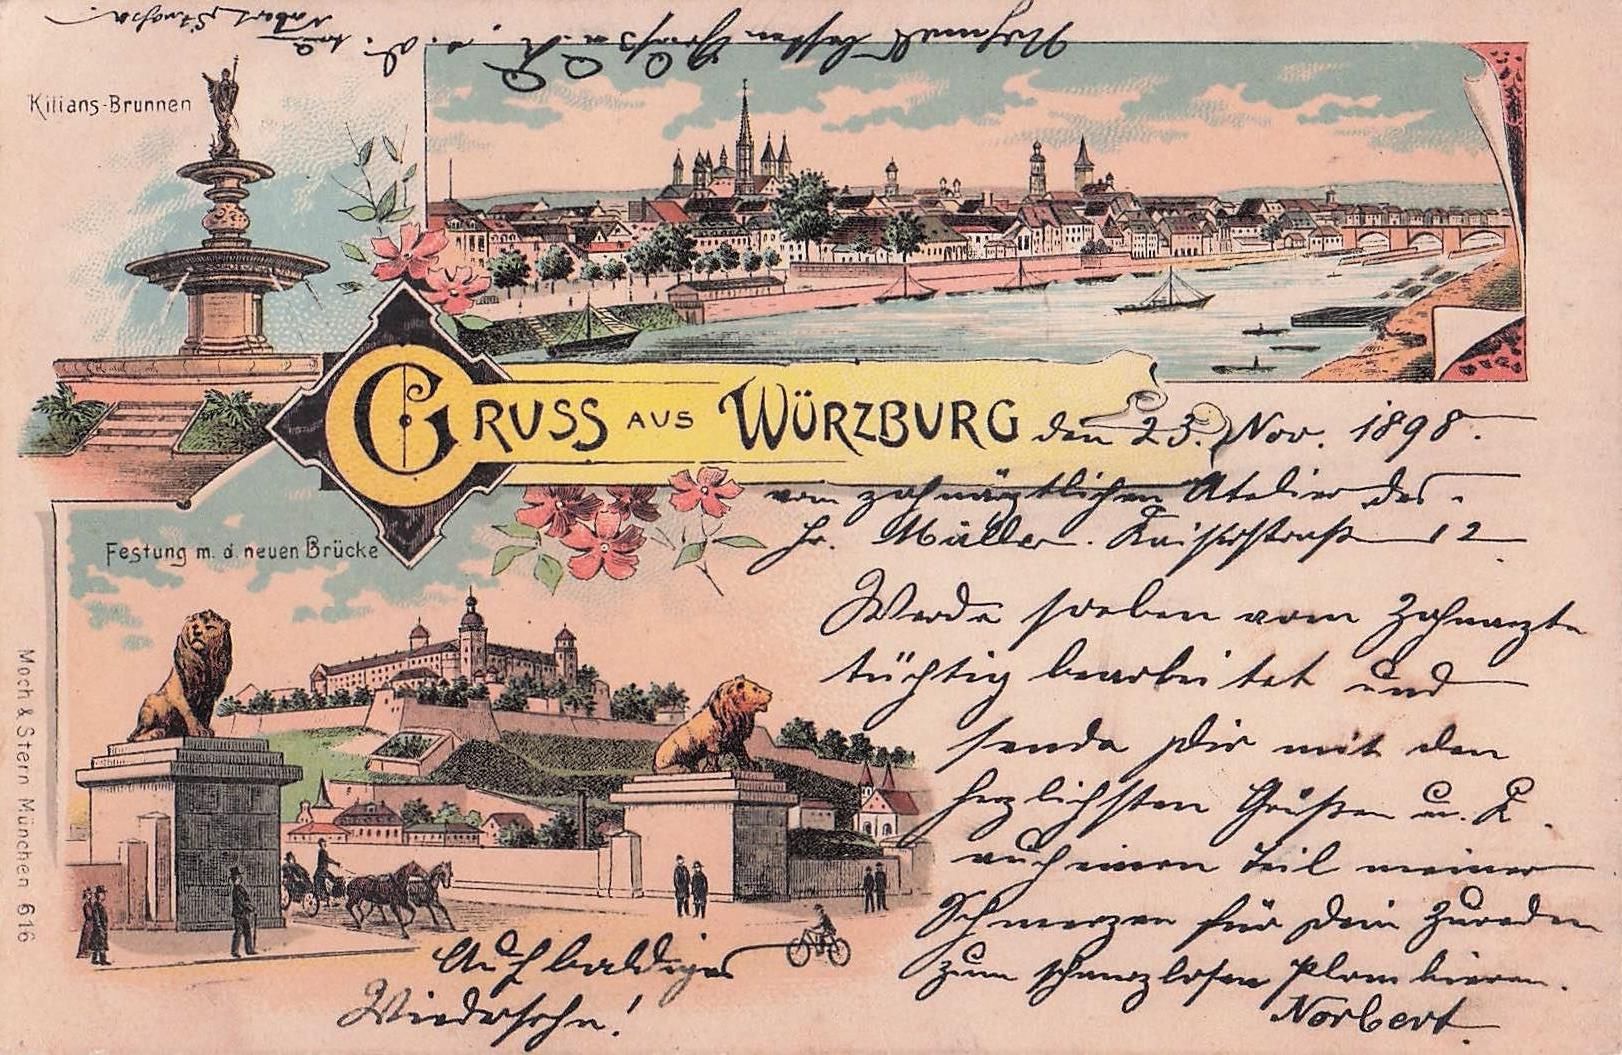 Kilians-Brunnen
GRUSS AUS WÜRZBURG den 23. Nov. 1898.
vom zahnärztlichen Atelier des
Hr. Müller. Kaiserstraß 12
Festung m. d. neuen Brücke
Werde soeben vom Zahnarzte
tüchtig bearbeitet und
sende Dir mit den
herzlichsten Grüßen u. K.
auch einen Teil meiner
Schmerzen für Dein Zureden
zum schmerzlosen Plombieren.
Norbert
Auf baldiges
Wiedersehn!
Nochmals besten Gruß
Norbert
Moch & Stern München 616